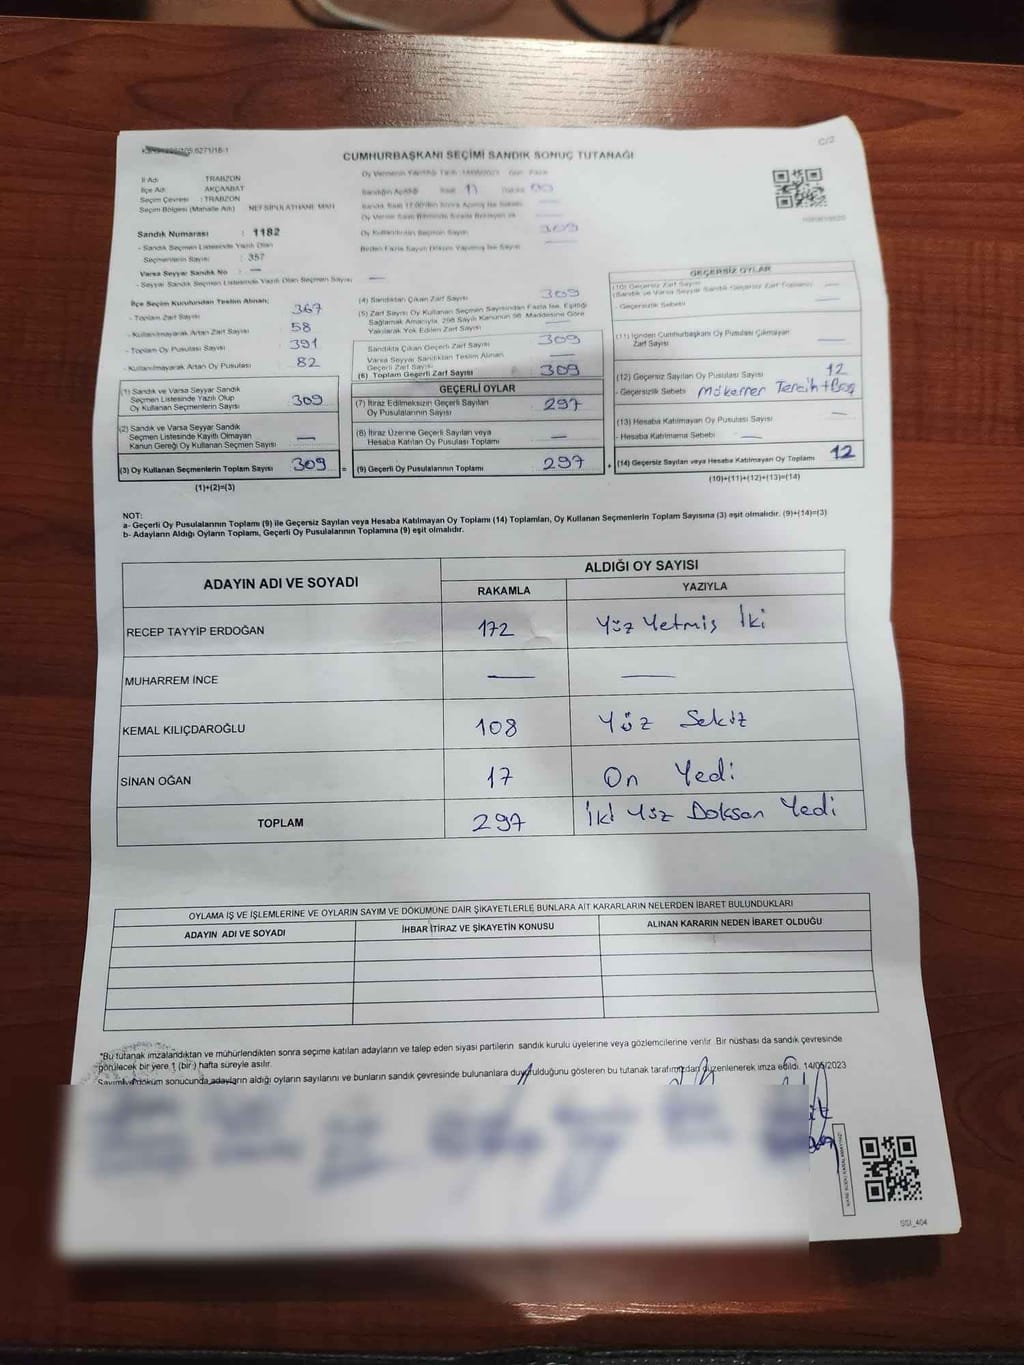 C/2
CUMHURBAŞKANI SEÇİMİ SANDIK SONUÇ TUTANAĞI
İl Adı : TRABZON
İlçe Adı : AKÇAABAT
Seçim Çevresi : TRABZON
Seçim Bölgesi (Mahalle Adı)
Sandık Numarası : 1182
- Sandık Seçmen Listesinde Yazılı Olan
Seçmenlerin Sayısı : 357
Varsa Seyyar Sandık No : —
- Seyyar Sandık Seçmen Listesinde Yazılı Olan Seçmen Sayısı : —
Oy Kullandırılan Seçmen Sayısı 309
İlçe Seçim Kurulundan Teslim Alınan;
- Toplam Zarf Sayısı 367
- Kullanılmayarak Artan Zarf Sayısı 58
- Toplam Oy Pusulası Sayısı 391
- Kullanılmayarak Artan Oy Pusulası 82
(1) Sandık ve Varsa Seyyar Sandık
Seçmen Listesinde Yazılı Olup
Oy Kullanan Seçmenlerin Sayısı 309
(2) Sandık ve Varsa Seyyar Sandık
Seçmen Listesinde Kayıtlı Olmayan
Kanun Gereği Oy Kullanan Seçmen Sayısı —
(3) Oy Kullanan Seçmenlerin Toplam Sayısı 309 =
(1)+(2)=(3)
(4) Sandıktan Çıkan Zarf Sayısı 309
(5) Zarf Sayısı Oy Kullanan Seçmen Sayısından Fazla İse, Eşitliği
Sağlamak Amacıyla, 298 Sayılı Kanunun 98. Maddesine Göre
Yakılarak Yok Edilen Zarf Sayısı —
Sandıkta Çıkan Geçerli Zarf Sayısı 309
Varsa Seyyar Sandıktan Teslim Alınan
Geçerli Zarf Sayısı —
(6) Toplam Geçerli Zarf Sayısı 309
GEÇERLİ OYLAR
(7) İtiraz Edilmeksizin Geçerli Sayılan
Oy Pusulalarının Sayısı 297
(8) İtiraz Üzerine Geçerli Sayılan veya
Hesaba Katılan Oy Pusulası Toplamı —
(9) Geçerli Oy Pusulalarının Toplamı 297 +
GEÇERSİZ OYLAR
(10) Geçersiz Zarf Sayısı
(Sandık ve Varsa Seyyar Sandık Geçersiz Zarf Toplamı) —
- Geçersizlik Sebebi —
(11) İçinden Cumhurbaşkanı Oy Pusulası Çıkmayan
Zarf Sayısı —
(12) Geçersiz Sayılan Oy Pusulası Sayısı 12
- Geçersizlik Sebebi Mükerrer Tercih+Boş
(13) Hesaba Katılmayan Oy Pusulası Sayısı —
- Hesaba Katılmama Sebebi —
(14) Geçersiz Sayılan veya Hesaba Katılmayan Oy Toplamı 12
(10)+(11)+(12)+(13)=(14)
NOT:
a- Geçerli Oy Pusulalarının Toplamı (9) ile Geçersiz Sayılan veya Hesaba Katılmayan Oy Toplamı (14) Toplamları, Oy Kullanan Seçmenlerin Toplam Sayısına (3) eşit olmalıdır. (9)+(14)=(3)
b- Adayların Aldığı Oyların Toplamı, Geçerli Oy Pusulalarının Toplamına (9) eşit olmalıdır.
ADAYIN ADI VE SOYADI ALDIĞI OY SAYISI
RAKAMLA YAZIYLA
RECEP TAYYİP ERDOĞAN 172 Yüz Yetmiş İki
MUHARREM İNCE — —
KEMAL KILIÇDAROĞLU 108 Yüz Sekiz
SİNAN OĞAN 17 On Yedi
TOPLAM 297 İki Yüz Doksan Yedi
OYLAMA İŞ VE İŞLEMLERİNE VE OYLARIN SAYIM VE DÖKÜMÜNE DAİR ŞİKAYETLERLE BUNLARA AİT KARARLARIN NELERDEN İBARET BULUNDUKLARI
ADAYIN ADI VE SOYADI İHBAR İTİRAZ VE ŞİKAYETİN KONUSU ALINAN KARARIN NEDEN İBARET OLDUĞU
*Bu tutanak imzalandıktan ve mühürlendikten sonra seçime katılan adayların ve talep eden siyasi partilerin sandık kurulu üyelerine veya gözlemcilerine verilir. Bir nüshası da sandık çevresinde
görülecek bir yere 1 (bir) hafta süreyle asılır.
Sayım ve döküm sonucunda adayların aldığı oyların sayılarını ve bunların sandık çevresinde bulunanlara duyurulduğunu gösteren bu tutanak tarafımızdan düzenlenerek imza edildi. 14/05/2023
SSİ_404